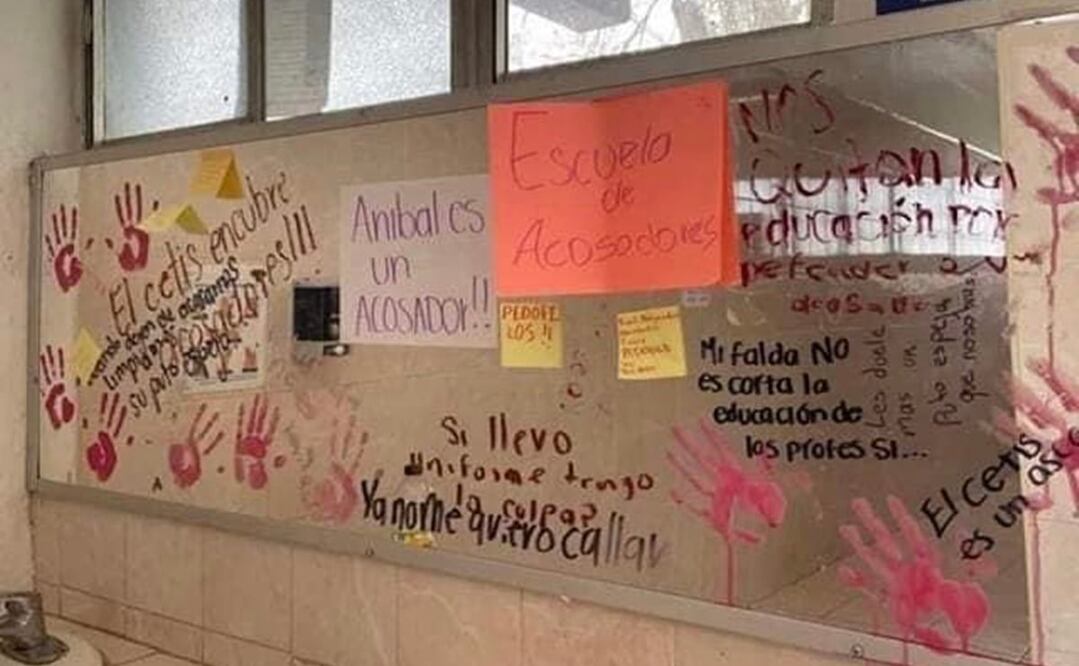 El cetis encubre
limpiamos
su puto espejo
Anibal es
un
ACOSADOR!!
Escuela
de
Acosadores
PEDOFI
LOS!!
NOS
Quitan la
educación por
defender a
Mi falda NO
es corta la
educación de
los profes SI...
Les duele
mas un
Puto espejo
que nosotras
Si llevo
uniforme tengo
la culpa?
Ya no me quiero callar
El cetis
es un asco